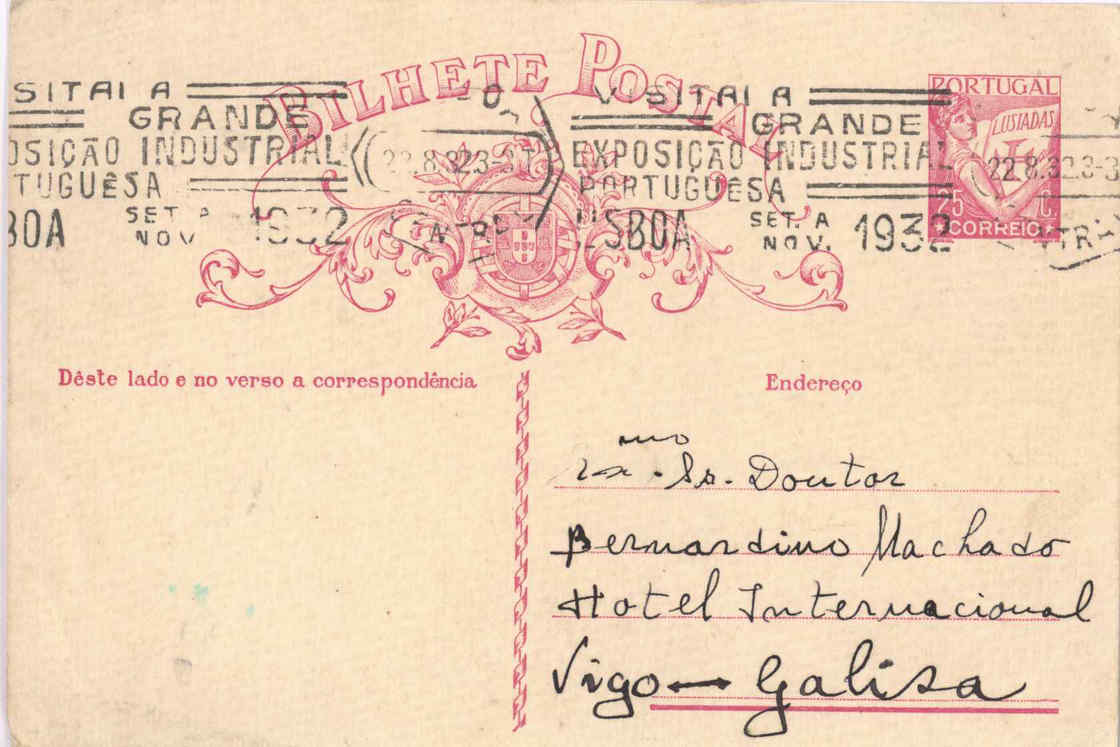 BILHETE POSTAL
SITAI A
GRANDE
OSIÇÃO INDUSTRIAL
TUGUÊSA
BOA SET. A
NOV. 1932
22.8.32
VISITAI A
GRANDE
EXPOSIÇÃO INDUSTRIAL
PORTUGUÊSA
LISBOA SET. A
NOV. 1932
PORTUGAL
LUSIADAS
22.8.32
25 C.
CORREIO
Dêste lado e no verso a correspondência
Endereço
Exmo. Sr. Doutor
Bernardino Machado
Hotel Internacional
Vigo — Galisa